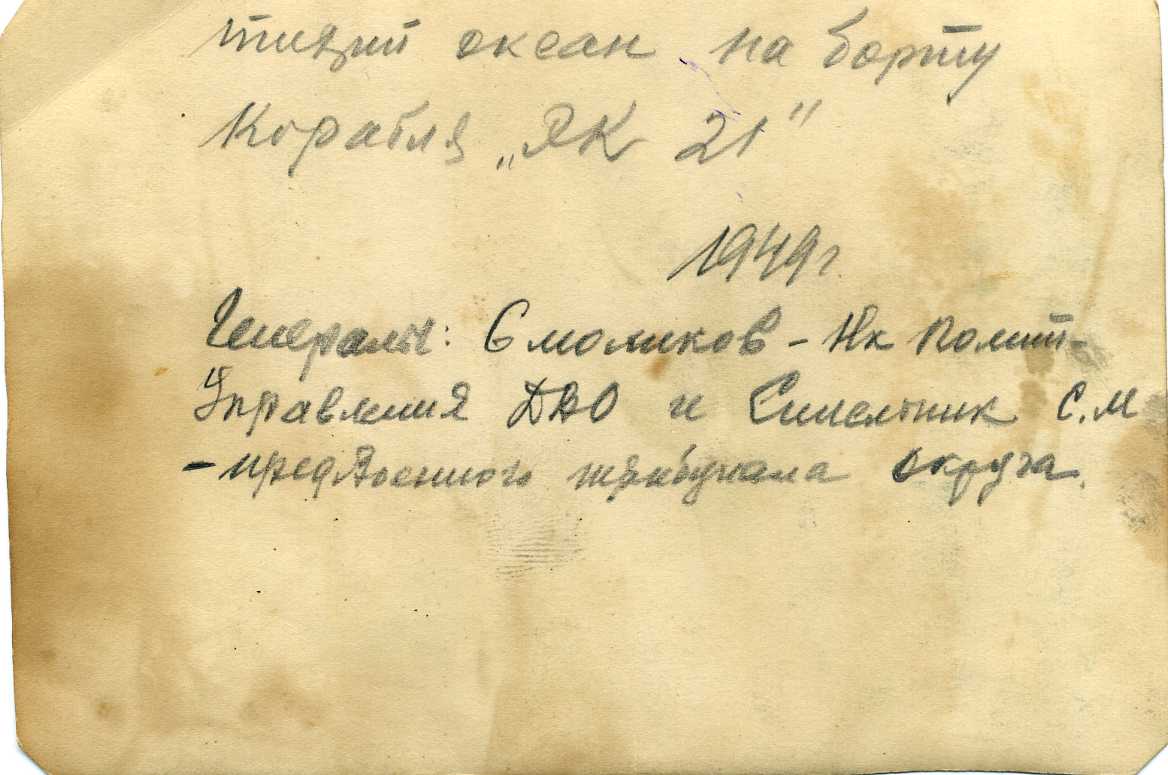 тихий океан на борту
Корабля „ЯК 21"
1949г.
Генералы: Смоликов - Нк Полит-
Управления ДВО и Синельник С.М
- предвоенного трибунала округа.